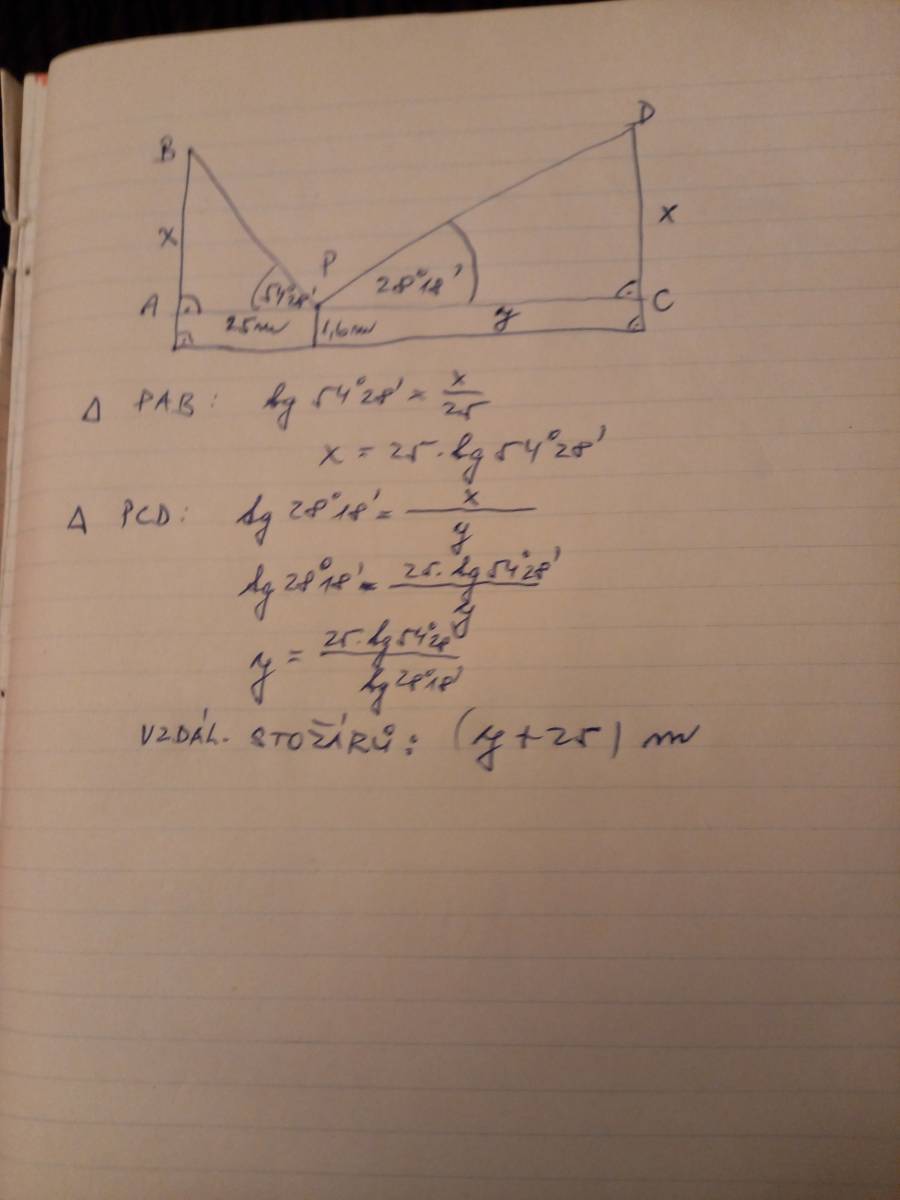 B
D
x
x
P
A
54°28'
28°18'
C
25m
1,6m
y
Δ PAB: tg 54°28' = x/25
x = 25 · tg 54°28'
Δ PCD: tg 28°18' = x/y
tg 28°18' = 25 · tg 54°28'/y
y = 25 · tg 54°28'/tg 28°18'
VZDÁL. STOŽÁRŮ: (y + 25) m